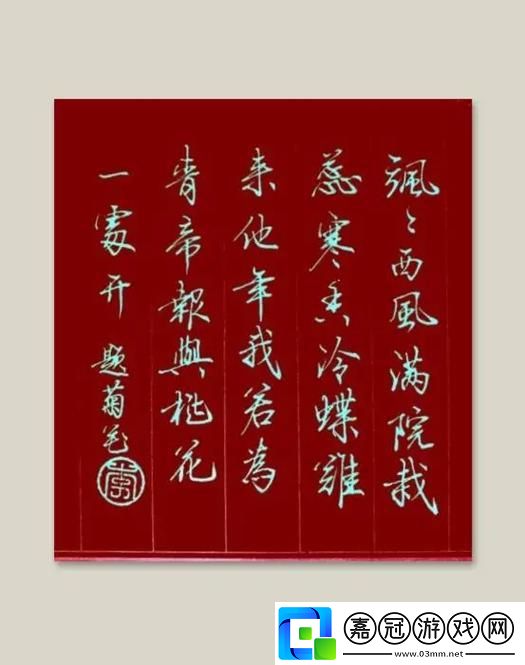 飒ミ西風满院栽
蕊寒香冷蝶難
来他年我若為
青帝報與桃花
一處开 题菊花
嘉冠游戏网
www.03mm.net